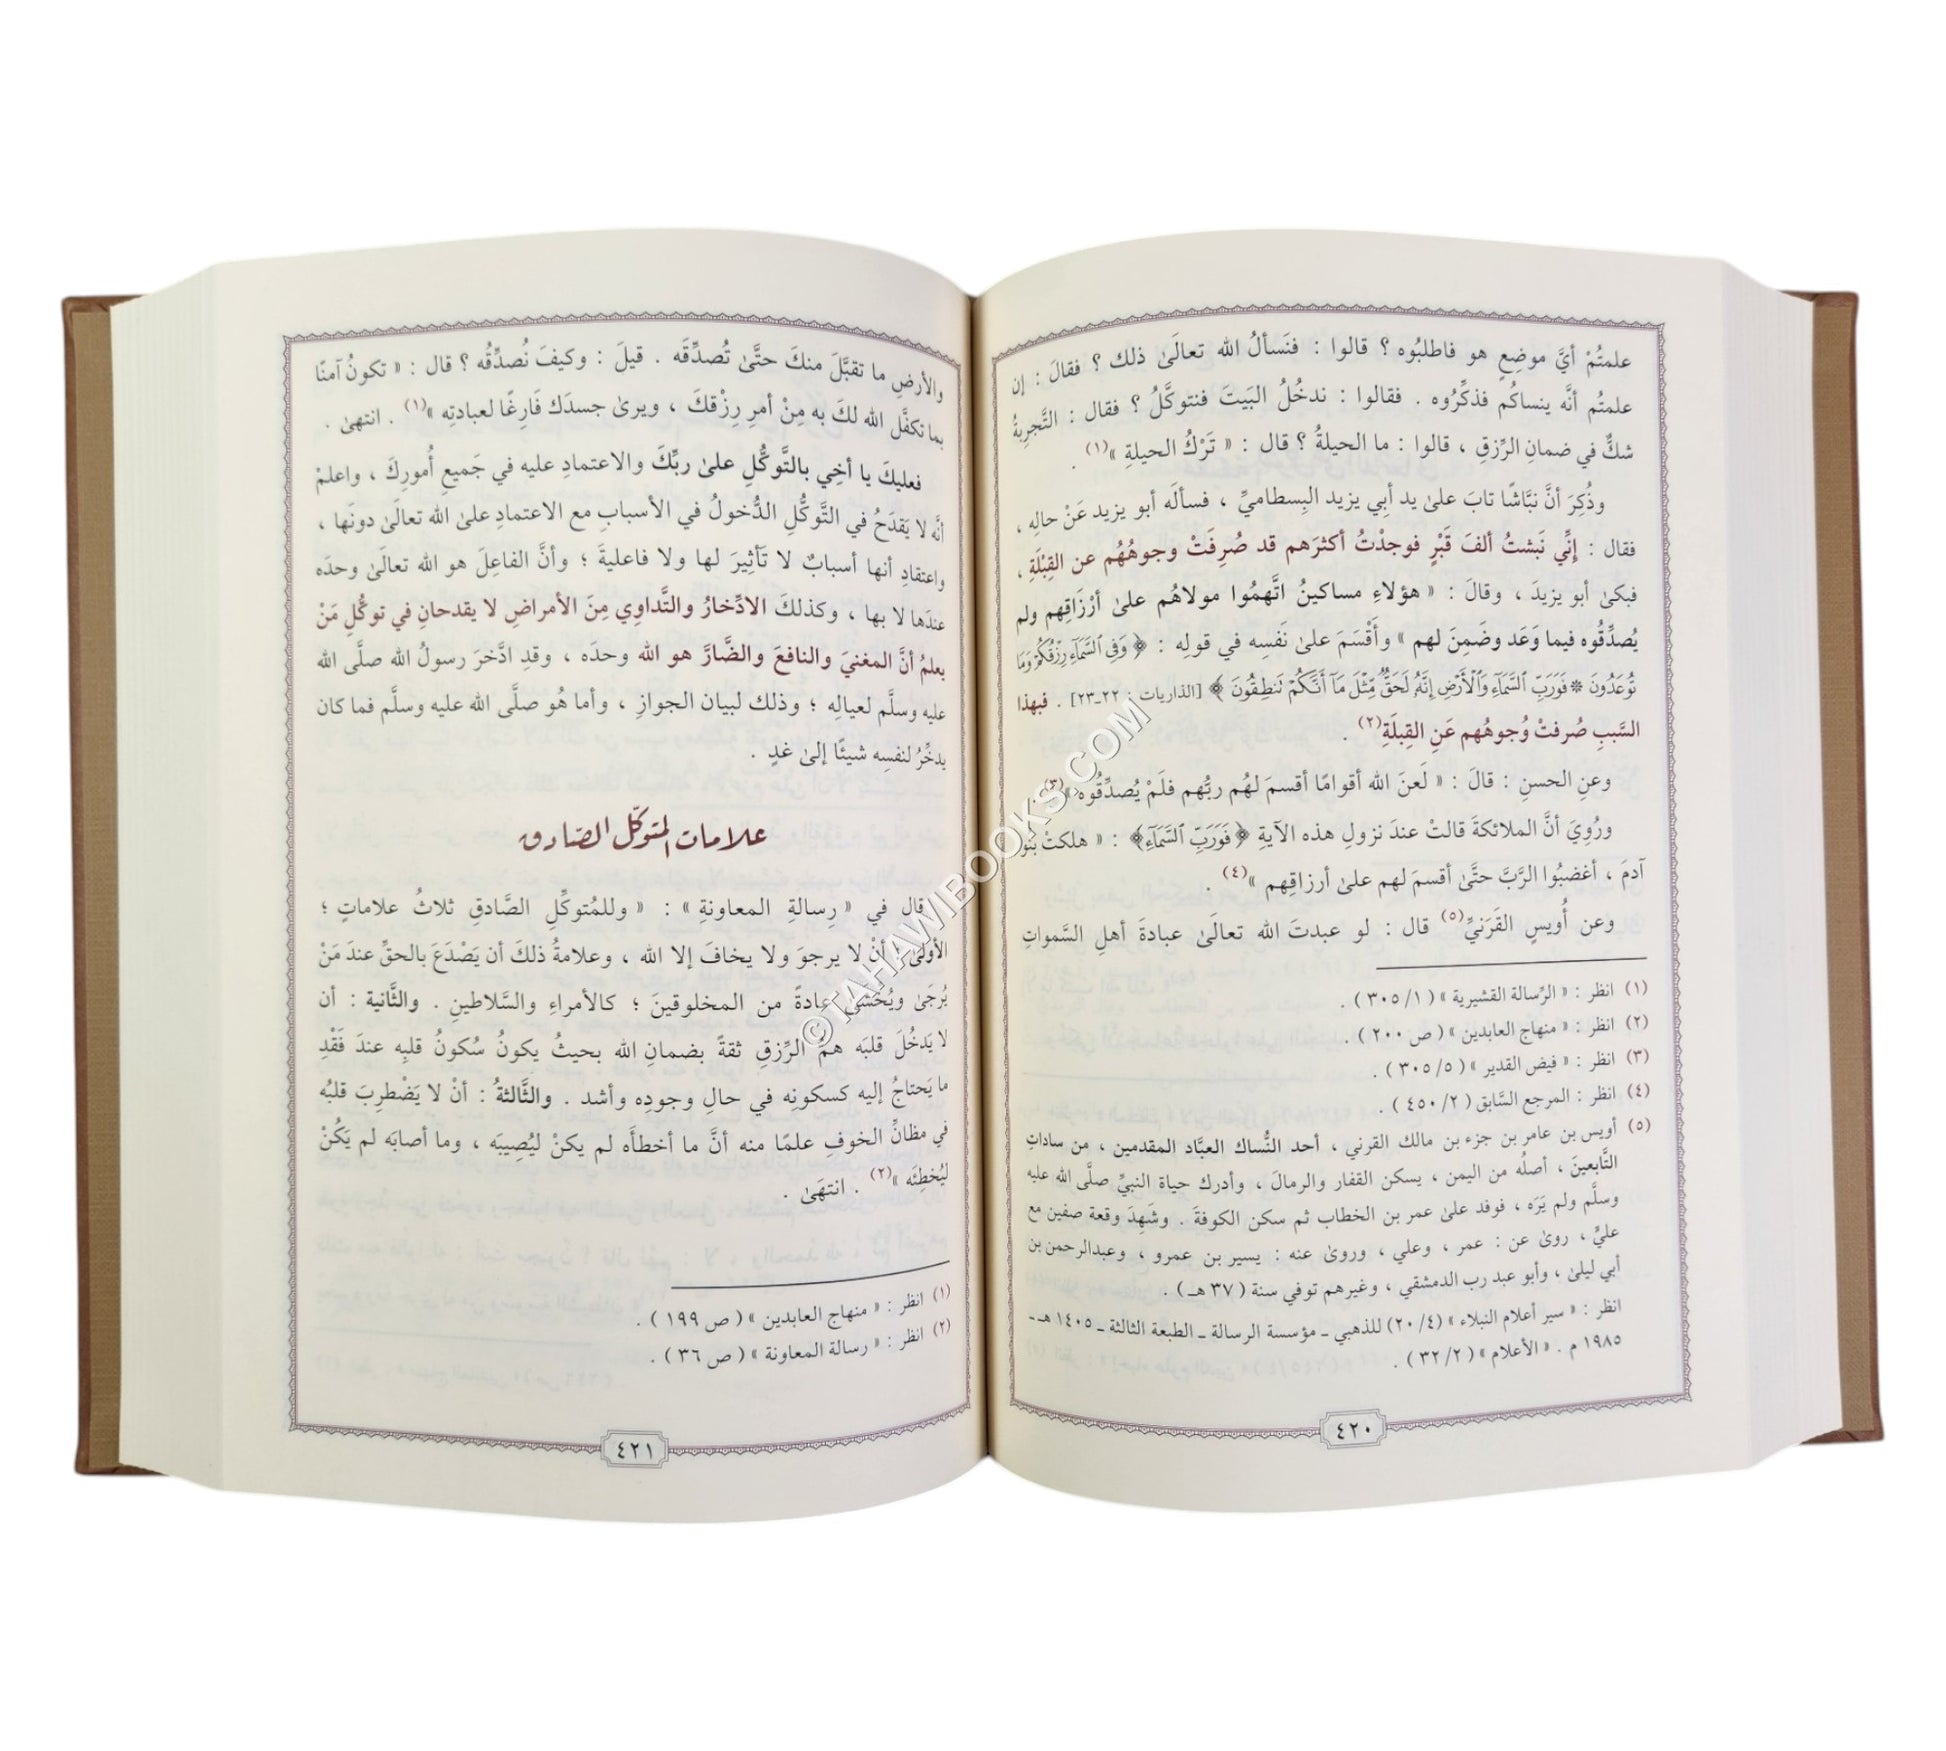 علمتُمْ أيَّ موضِعٍ هو فاطلبُوه ؟ قالوا : فنَسألُ الله تعالَىٰ ذلك ؟ فقالَ : إن
علمتُم أنَّه ينساكُم فذكِّرُوه . فقالوا : ندخُلُ البَيتَ فنتوكَّلُ ؟ فقال : التَّجرِبةُ
شكٌّ في ضمانِ الرِّزقِ ، قالوا : ما الحيلةُ ؟ قال : « تَرْكُ الحيلةِ »(١) .
وذُكِرَ أنَّ نبَّاشًا تابَ علىٰ يد أبي يزيد البِسطاميِّ ، فسألَه أبو يزيد عَنْ حالِه ،
فقال : إنِّي نَبشتُ ألفَ قَبْرٍ فوجدْتُ أكثرَهم قد صُرِفَتْ وجوهُهُم عن القِبْلَةِ ،
فبكىٰ أبو يزيدَ ، وقالَ : « هؤلاءِ مساكينُ اتَّهمُوا مولاهُم علىٰ أرْزَاقِهم ولم
يُصدِّقُوه فيما وَعَد وضَمِنَ لهم » وأَقْسَمَ علىٰ نَفسِه في قولِه : ﴿ وَفِي ٱلسَّمَآءِ رِزْقُكُمْ وَمَا
تُوعَدُونَ * فَوَرَبِّ ٱلسَّمَآءِ وَٱلْأَرْضِ إِنَّهُۥ لَحَقٌّ مِّثْلَ مَآ أَنَّكُمْ تَنطِقُونَ ﴾ [الذاريات : ٢٢-٢٣] . فبهذا
السَّببِ صُرفتْ وُجوهُهم عَنِ القِبلَةِ(٢) .
وعنِ الحسنِ : قالَ : « لَعنَ الله أقوامًا أقسمَ لهُم ربُّهم فلَمْ يُصدِّقُوه »(٣) .
ورُوِيَ أنَّ الملائكةَ قالتْ عندَ نزولِ هذه الآيةِ ﴿ فَوَرَبِّ ٱلسَّمَآءِ ﴾ : « هلكتْ بنُو
آدمَ ، أغضبُوا الرَّبَّ حتَّىٰ أقسمَ لهم علىٰ أرزاقِهم »(٤) .
وعن أُويسٍ القَرَنيِّ(٥) قال : لو عبدتَ الله تعالَىٰ عبادةَ أهلِ السَّمواتِ
(١) انظر : « الرِّسالة القشيرية » ( ٣٠٥/١ ) .
(٢) انظر : « منهاج العابدين » ( ص ٢٠٠ ) .
(٣) انظر : « فيض القدير » ( ٣٠٥/٥ ) .
(٤) انظر : المرجع السَّابق ( ٤٥٠/٢ ) .
(٥) أويس بن عامر بن جزء بن مالك القرني ، أحد النُّساك العبَّاد المقدمين ، من ساداتِ
التَّابعينَ ، أصلُه من اليمن ، يسكن القفار والرمالَ ، وأدرك حياة النبيِّ صلَّى الله عليه
وسلَّم ولم يَرَه ، فوفد علىٰ عمر بن الخطاب ثم سكن الكوفةَ . وشَهِدَ وقعة صفين مع
عليٍّ ، روىٰ عن : عمر ، وعلي ، وروىٰ عنه : يسير بن عمرو ، وعبدالرحمن بن
أبي ليلىٰ ، وأبو عبد رب الدمشقي ، وغيرهم توفي سنة ( ٣٧ هـ ) .
انظر : « سير أعلام النبلاء » (٢٠/٤) للذهبي ـ مؤسسة الرسالة ـ الطبعة الثالثة ـ ١٤٠٥ هـ ـ
١٩٨٥ م . « الأعلام » ( ٣٢/٢ ) .
٤٢٠
والأرضِ ما تقبَّلَ منكَ حتَّىٰ تُصدِّقَه . قيلَ : وكيفَ نُصدِّقُه ؟ قال : « تكونُ آمنًا
بما تكفَّل الله لكَ به مِنْ أمرِ رِزْقكَ ، ويرىٰ جسدَك فَارِغًا لعبادتِه »(١) . انتهىٰ .
فعليكَ يا أخِي بالتَّوكُّلِ علىٰ ربِّكَ والاعتمادِ عليه في جَميعِ أُموركَ ، واعلمْ
أنَّه لا يَقدَحُ في التَّوكُّلِ الدُّخولُ في الأسبابِ مع الاعتمادِ علىٰ الله تعالَىٰ دونَها ،
واعتقادِ أنها أسبابٌ لا تَأثِيرَ لها ولا فاعليةَ ؛ وأنَّ الفاعِلَ هو الله تعالَىٰ وحدَه
عندَها لا بها ، وكذلكَ الادِّخارُ والتَّداوِي مِنَ الأمراضِ لا يقدحانِ في توكُّلِ مَنْ
يعلمُ أنَّ المغنيَ والنافعَ والضَّارَّ هو الله وحدَه ، وقدِ ادَّخرَ رسولُ الله صلَّى الله
عليه وسلَّم لعيالِه ؛ وذلك لبيان الجوازِ ، وأما هُو صلَّى الله عليه وسلَّم فما كان
يدخِّرُ لنفسِه شيئًا إلىٰ غدٍ .
علامات المتوكّل الصّادق
قال في « رِسالةِ المعاونةِ » : « وللمُتوكِّلِ الصَّادقِ ثلاثُ علاماتٍ ؛
الأولىٰ : أنْ لا يرجوَ ولا يخافَ إلا الله ، وعلامةُ ذلكَ أن يَصْدَعَ بالحقِّ عندَ مَنْ
يُرجَىٰ ويُخشَىٰ عادةً من المخلوقينَ ؛ كالأمراءِ والسَّلاطينِ . والثَّانية : أن
لا يَدخُلَ قلبَه همُّ الرِّزقِ ثقةً بضمانِ الله بحيثُ يكونُ سُكونُ قلبِه عندَ فَقْدِ
ما يَحتاجُ إليه كسكونِه في حالِ وجودِه وأشد . والثَّالثةُ : أنْ لا يَضْطرِبَ قلبُه
في مظانِّ الخوفِ علمًا منه أنَّ ما أخطأَه لم يكنْ ليُصِيبَه ، وما أصابَه لم يَكُنْ
ليُخطِئَه »(٢) . انتهَىٰ .
(١) انظر : « منهاج العابدين » ( ص ١٩٩ ) .
(٢) انظر : « رسالة المعاونة » ( ص ٣٦ ) .
٤٢١
© TAHAWIBOOKS.COM